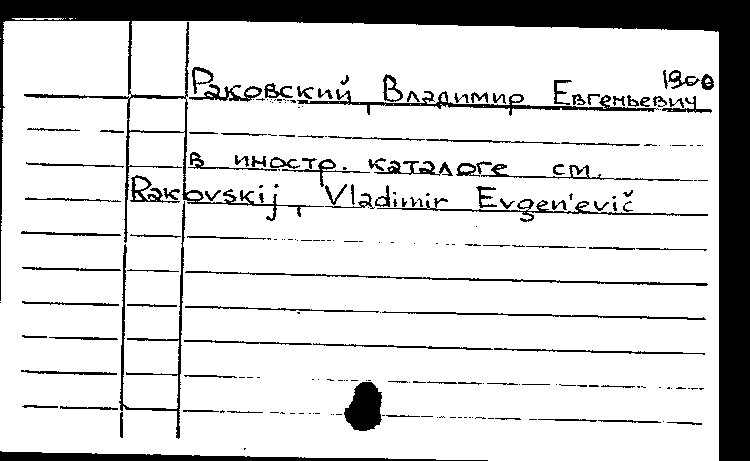 1900
Раковский, Владимир Евгеньевич
в иностр. каталоге см.
Rakovskij, Vladimir Evgen'evič